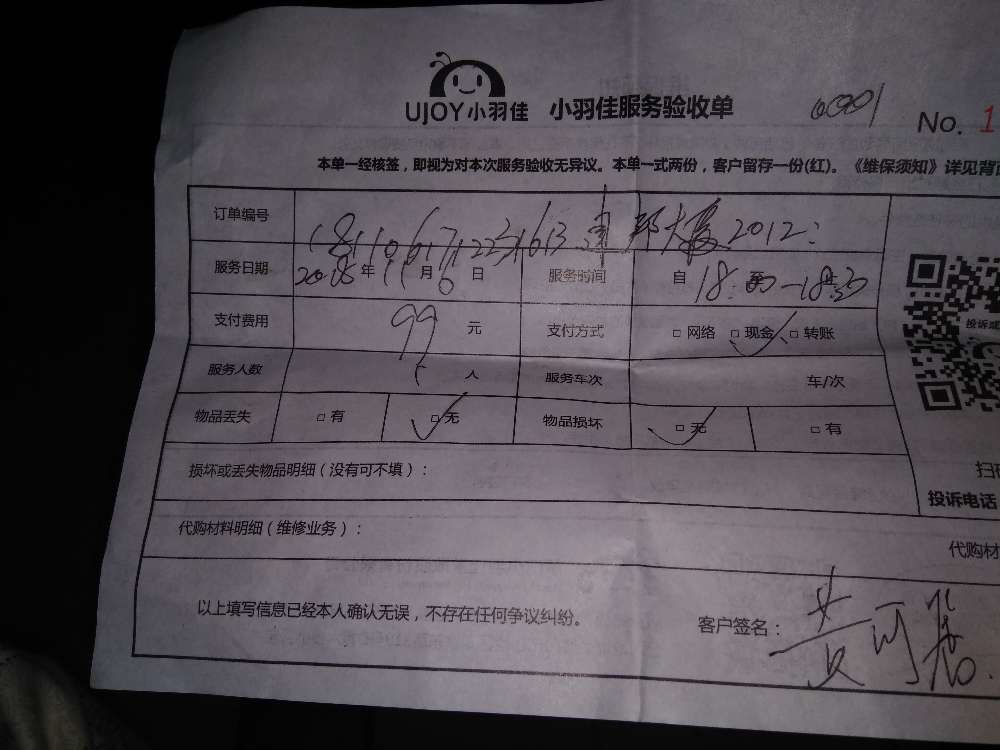 UJOY小羽佳 小羽佳服务验收单 0001 No. 1
本单一经核签，即视为对本次服务验收无异议。本单一式两份，客户留存一份(红)。《维保须知》详见背
订单编号 大厦2012
服务日期 2018年11月6日 服务时间 自18:00至18:30
支付费用 99元 支付方式 □网络 □现金 □转账
服务人数 1人 服务车次 车/次
物品丢失 □有 □无 物品损坏 □无 □有
损坏或丢失物品明细（没有可不填）：
投诉电话
代购材料明细（维修业务）：
代购材
以上填写信息已经本人确认无误，不存在任何争议纠纷。 客户签名：